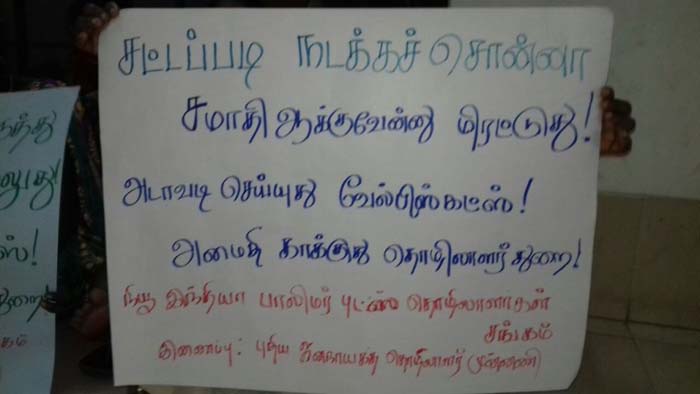 சட்டப்படி நடக்கச் சொன்னா
சமாதி ஆக்குவேன்னு மிரட்டுது!
அடாவடி செய்யுது வேல்பிஸ்கட்ஸ்!
அமைதி காக்குது தொழிலாளர் துறை!
நியூ இந்தியா பாலிமர் புட்ஸ் தொழிலாளர்கள்
சங்கம்
இணைப்பு: புதிய ஜனநாயகத் தொழிலாளர் முன்னணி